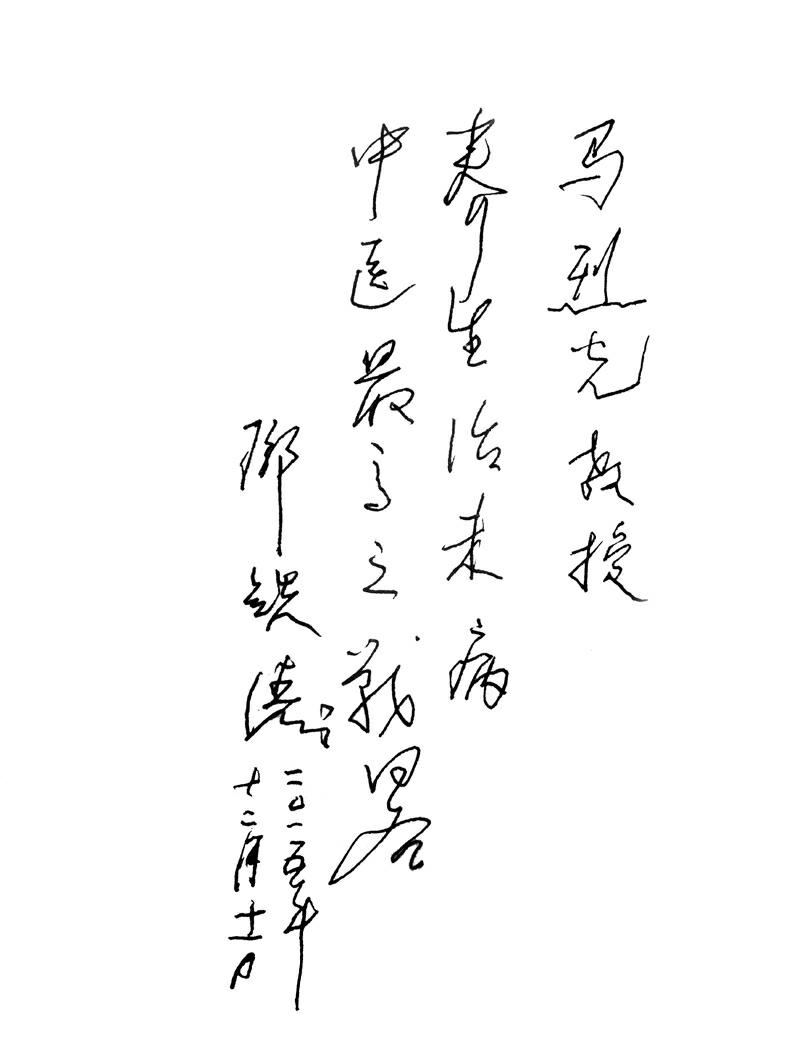 马烈光教授
养生治未病
中医最高之战略
邓铁涛
二〇一五年
十二月十一日